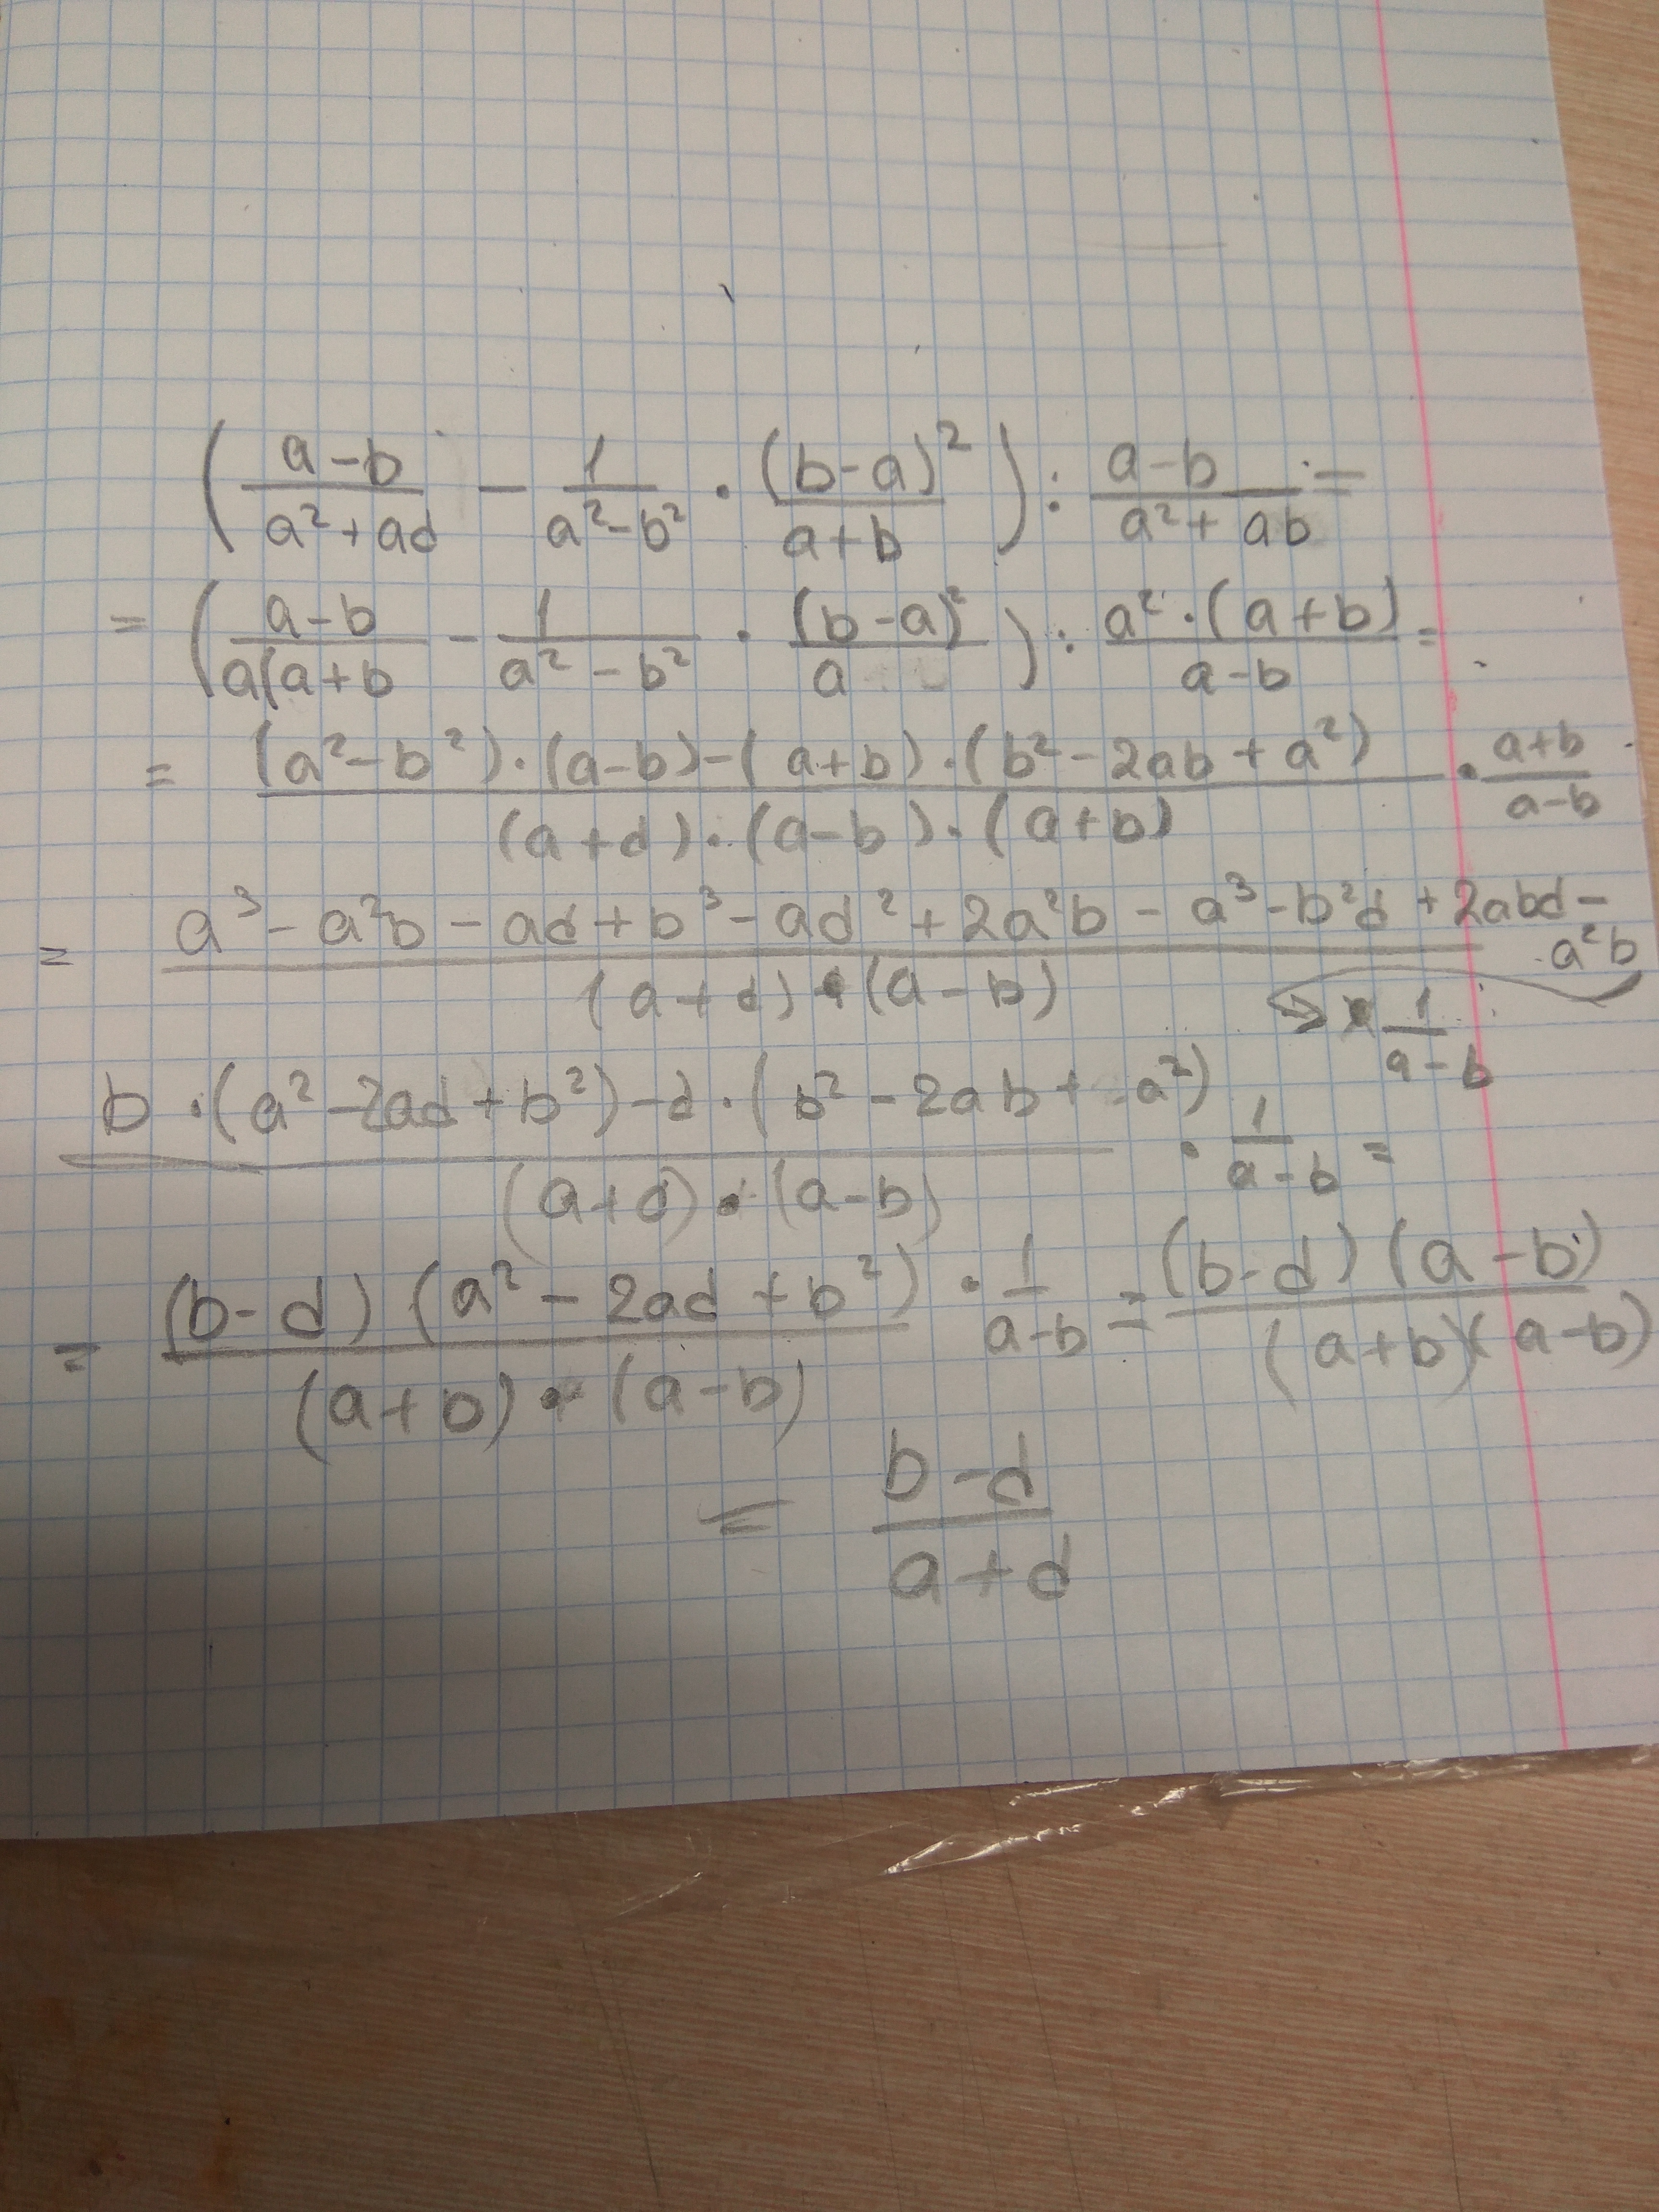 ( (a-b)/(a²+ad) - 1/(a²-b²) · (b-a)²/(a+b) ) : (a-b)/(a²+ab) =
= ( (a-b)/(a(a+b) - 1/(a²-b²) · (b-a)²/a ) : (a²·(a+b))/(a-b) =
= ((a²-b²)·(a-b)-(a+b)·(b²-2ab+a²))/((a+d)·(a-b)·(a+b)) · (a+b)/(a-b)
= (a³-a²b-ad+b³-ad²+2a²b-a³-b²d+2abd-a²b)/((a+d)·(a-b)) · 1/(a-b)
(b·(a²-2ad+b²)-d·(b²-2ab+a²))/((a+d)·(a-b)) · 1/(a-b) =
= ((b-d)(a²-2ad+b²))/((a+b)·(a-b)) · 1/(a-b) = ((b-d)(a-b))/((a+b)(a-b))
= (b-d)/(a+d)